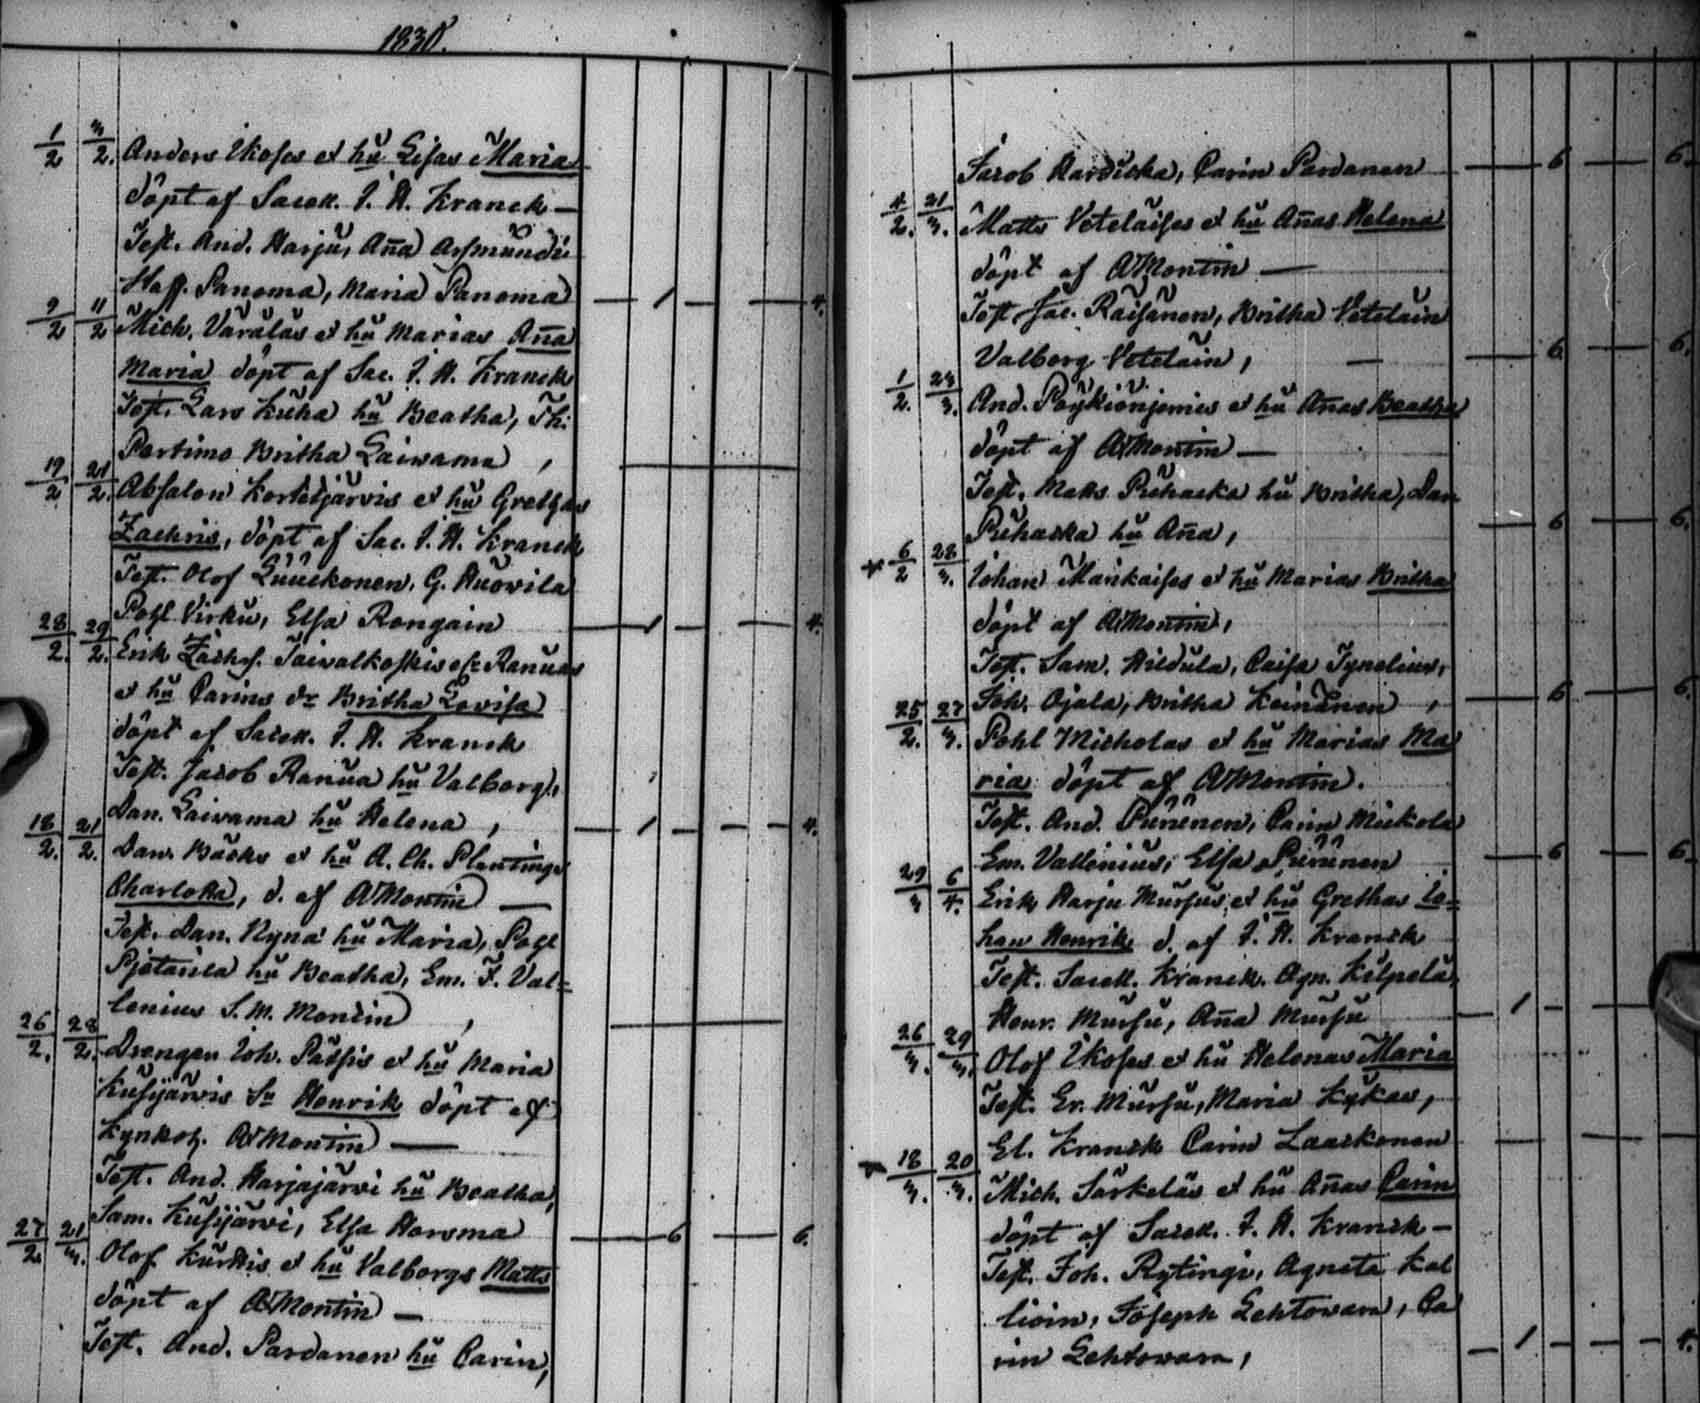 1830.
1/2 3/2. Anders Ikoses et hu Lisas Maria
döpt af Sacell. J. H. Kranck —
Test. And. Harju, Aña Asmundi
Hoff. Panoma, Maria Panoma — 1 — — 4.
9/2 11/2 Mich. Väräläs et hu Marias Aña
Maria döpt af Sac. J. H. Kranck
Test. Lars Kuha hu Beatha, Th:
Portimo Britha Laivama,
19/2 21/2. Absalon Korteljärvis et hu Grethas
Zachris, döpt af Sac. J. H. Kranck
Test. Olof Luuskonen, G. Auovila
Pohl Virku, Elsa Rongain — 1 — — 4.
28/2. 29/2. Erik Zachs. Taivalkoskis Ranuas
et hu Carins dr Britha Lovisa
döpt af Sacell. J. H. Kranck
Test. Jacob Ranua hu Valborg,
Dan. Laivama hu Helena, — 1 — — — 4.
18/2. 21/2. Dan. Bäcks et hu A. Ch. Plantings
Charlotta, d. af A Montin —
Test. Dan. Nynä hu Maria, Pohl
Pjetarila hu Beatha, Em. F. Val=
lenius S. M. Montin,
26/2. 28/2. Drengen Joh. Pätsis et hu Maria
Kusijärvis Sn Henrik döpt af
Kyrkoh. A Montin —
Test. And. Harjajärvi hu Beatha,
Sam. Kusijärvi, Elsa Horsma — 6 — 6.
27/2 21/3. Olof Kurttis et hu Valborgs Matts
döpt af A Montin —
Test. And. Pardanen hu Carin,
Jacob Karduska, Carin Pardanen — 6 — — 6.
4/2. 21/3. Matts Veteläises et hu Añas Helena
döpt af A Montin —
Test. Jac. Räisänen, Britha Vetelain
Valborg Vetelain, — 6. — 6.
1/2. 23/3. And. Pöykiönjemies et hu Añas Beatha
döpt af A Montin —
Test. Matts Puhacka hu Britha, Dan
Puhacka hu Aña, — 6 — 6.
6/2 28/3. Johan Mankaises et hu Marias Britha
döpt af A Montin,
Test. Sam. Hildula, Caisa Tynelius,
Joh. Ojala, Britha Keinänen, — 6 — 6.
25/2. 27/3. Pohl Mickolas et hu Marias Ma
ria döpt af A Montin.
Test. And. Purunen, Carin Mickola
Em. Vallenius, Elsa Purunen — 6 — 6.
29/3 6/4. Erik Harju Mursus et hu Grethas Jo=
han Henrik d. af J. H. Kranck
Test. Sacell. Kranck. Agn. Kilpelä,
Henr. Mursu, Aña Mursu — 1 — — —
26/3. 29/3. Olof Ikoses et hu Helenas Maria
Test. Er. Mursu, Maria Kykäs,
El. Kranck Carin Laaskonen
18/3. 20/3. Mich. Särkeläs et hu Añas Carin
döpt af Sacell. J. H. Kranck —
Test. Joh. Rytingi, Agneta Kal
lioin, Joseph Lehtovara, Ca
rin Lehtovara, — 1 — — — 4.